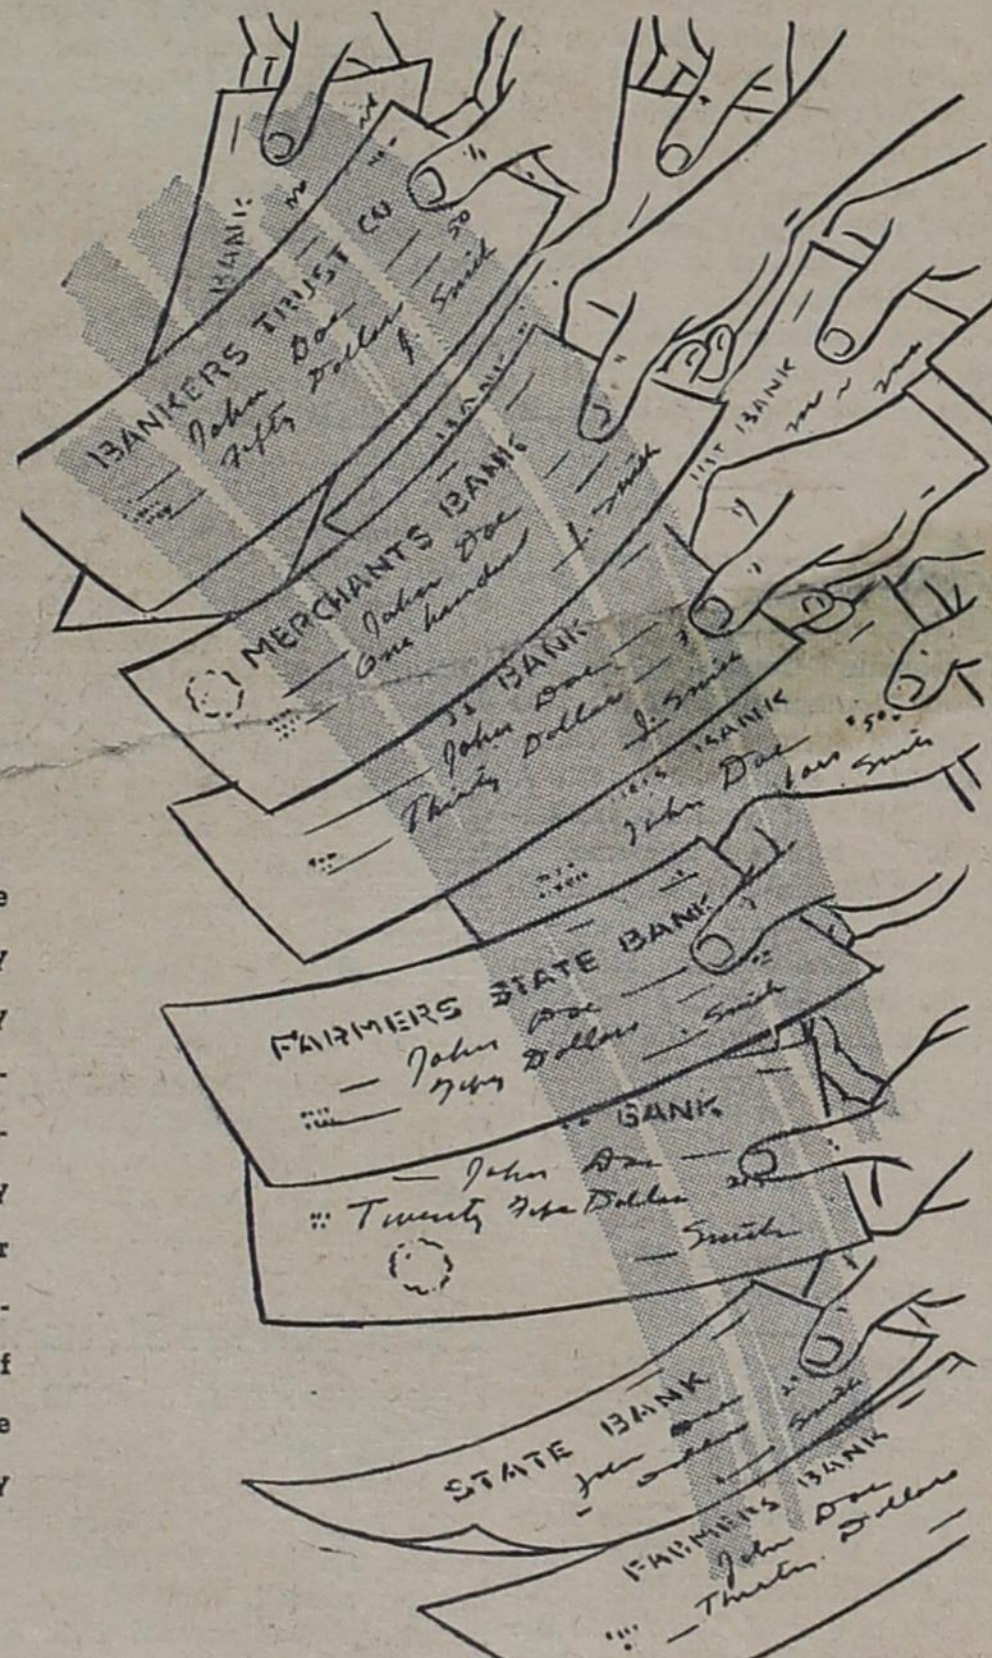 BANK
BANKERS TRUST CO
John Doe
50
Fifty Dollars
J. Smith
BANK
MERCHANTS BANK
John Doe
One hundred
J. Smith
BANK
BANK
John Doe
Thirty Dollars
J. Smith
BANK
John Doe
50
Smith
FARMERS STATE BANK
John Doe
Fifty Dollars
Smith
BANK
John Doe
Twenty Five Dollars
Smith
STATE BANK
John Doe
Dollars
Smith
FARMERS BANK
John Doe
Thirty Dollars
e
y
y
-
-
y
r
-
f
e
y